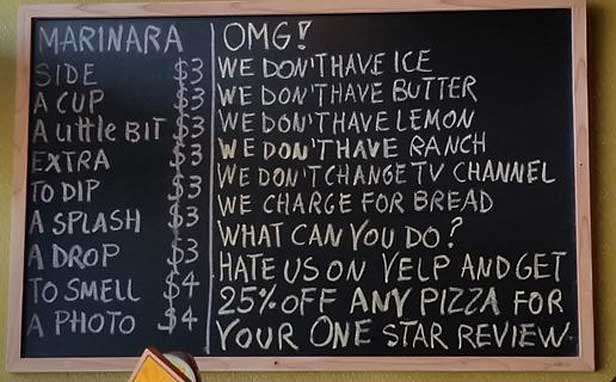 MARINARA
SIDE $3
A CUP $3
A little BIT $3
EXTRA $3
TO DIP $3
A SPLASH $3
A DROP $3
TO SMELL $4
A PHOTO $4
OMG!
WE DON'T HAVE ICE
WE DON'T HAVE BUTTER
WE DON'T HAVE LEMON
WE DON'T HAVE RANCH
WE DON'T CHANGE TV CHANNEL
WE CHARGE FOR BREAD
WHAT CAN YOU DO?
HATE US ON YELP AND GET
25% OFF ANY PIZZA FOR
YOUR ONE STAR REVIEW